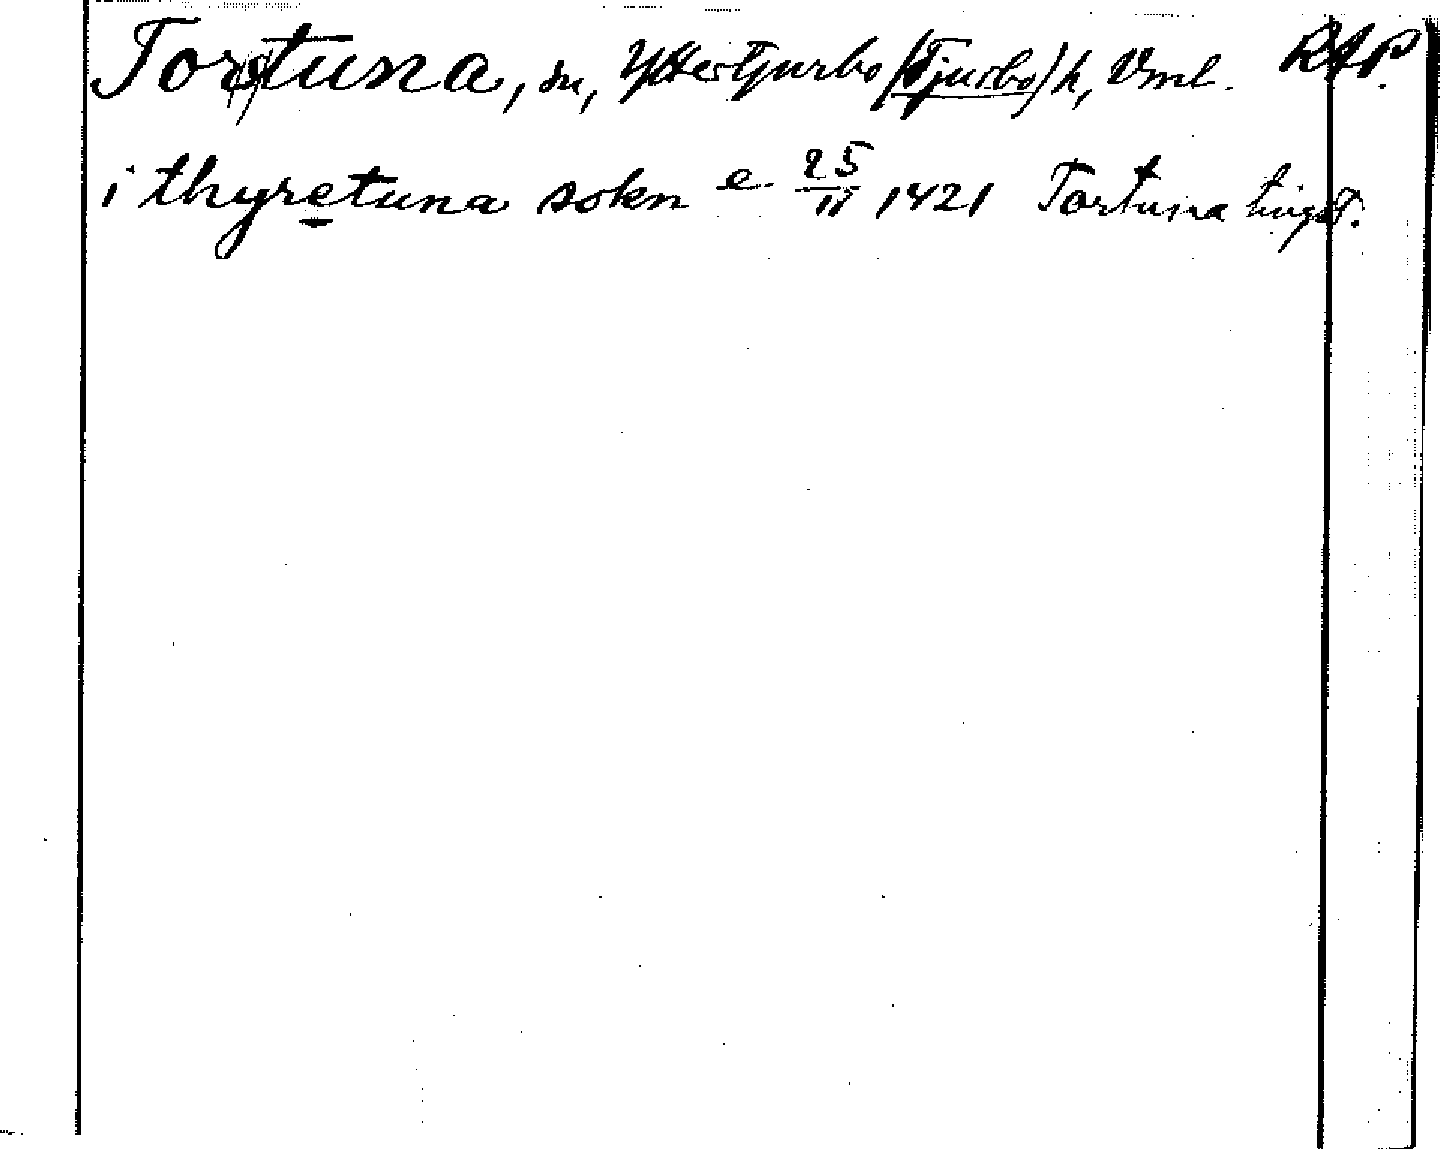 Tortuna, sn, Yttertjurbo (Tjurbo) h, Vml. RAP.
i thyretuna sokn e. 25/11 1421 Tortuna tinget.